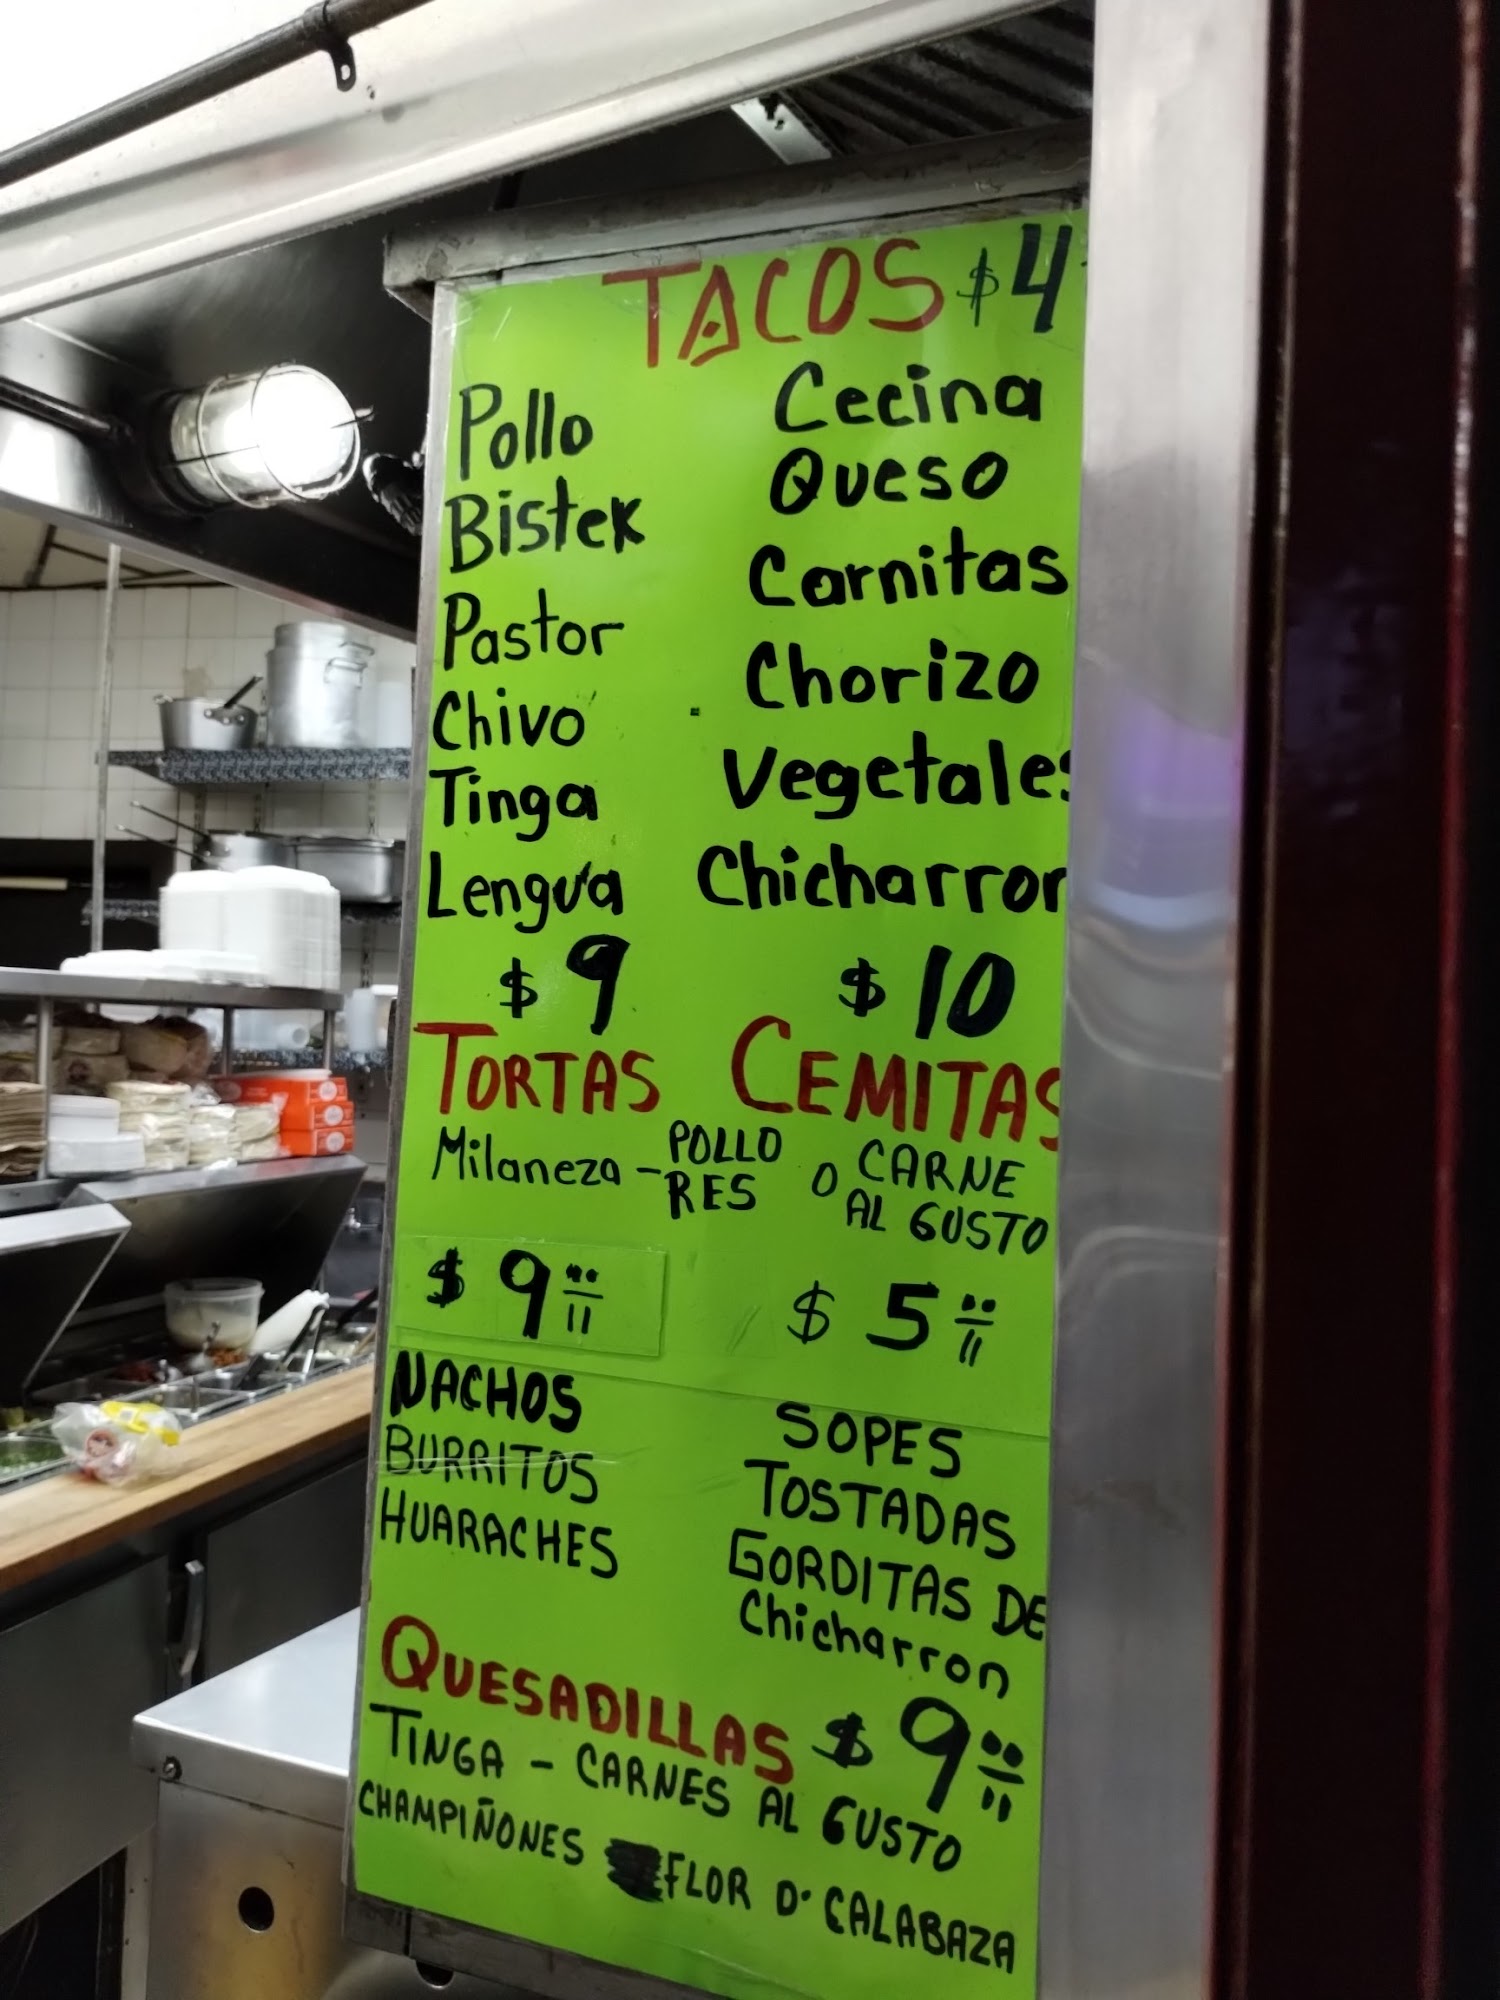 TACOS $4
Pollo
Bistek
Pastor
Chivo
Tinga
Lengua
Cecina
Queso
Carnitas
Chorizo
Vegetales
Chicharron
$ 9
$ 10
TORTAS CEMITAS
Milaneza - POLLO
RES
O CARNE
AL GUSTO
$ 9 ..
$ 5 ..
NACHOS
BURRITOS
HUARACHES
SOPES
TOSTADAS
GORDITAS DE
Chicharron
QUESADILLAS $ 9 ..
TINGA - CARNES AL GUSTO
CHAMPIÑONES FLOR D. CALABAZA